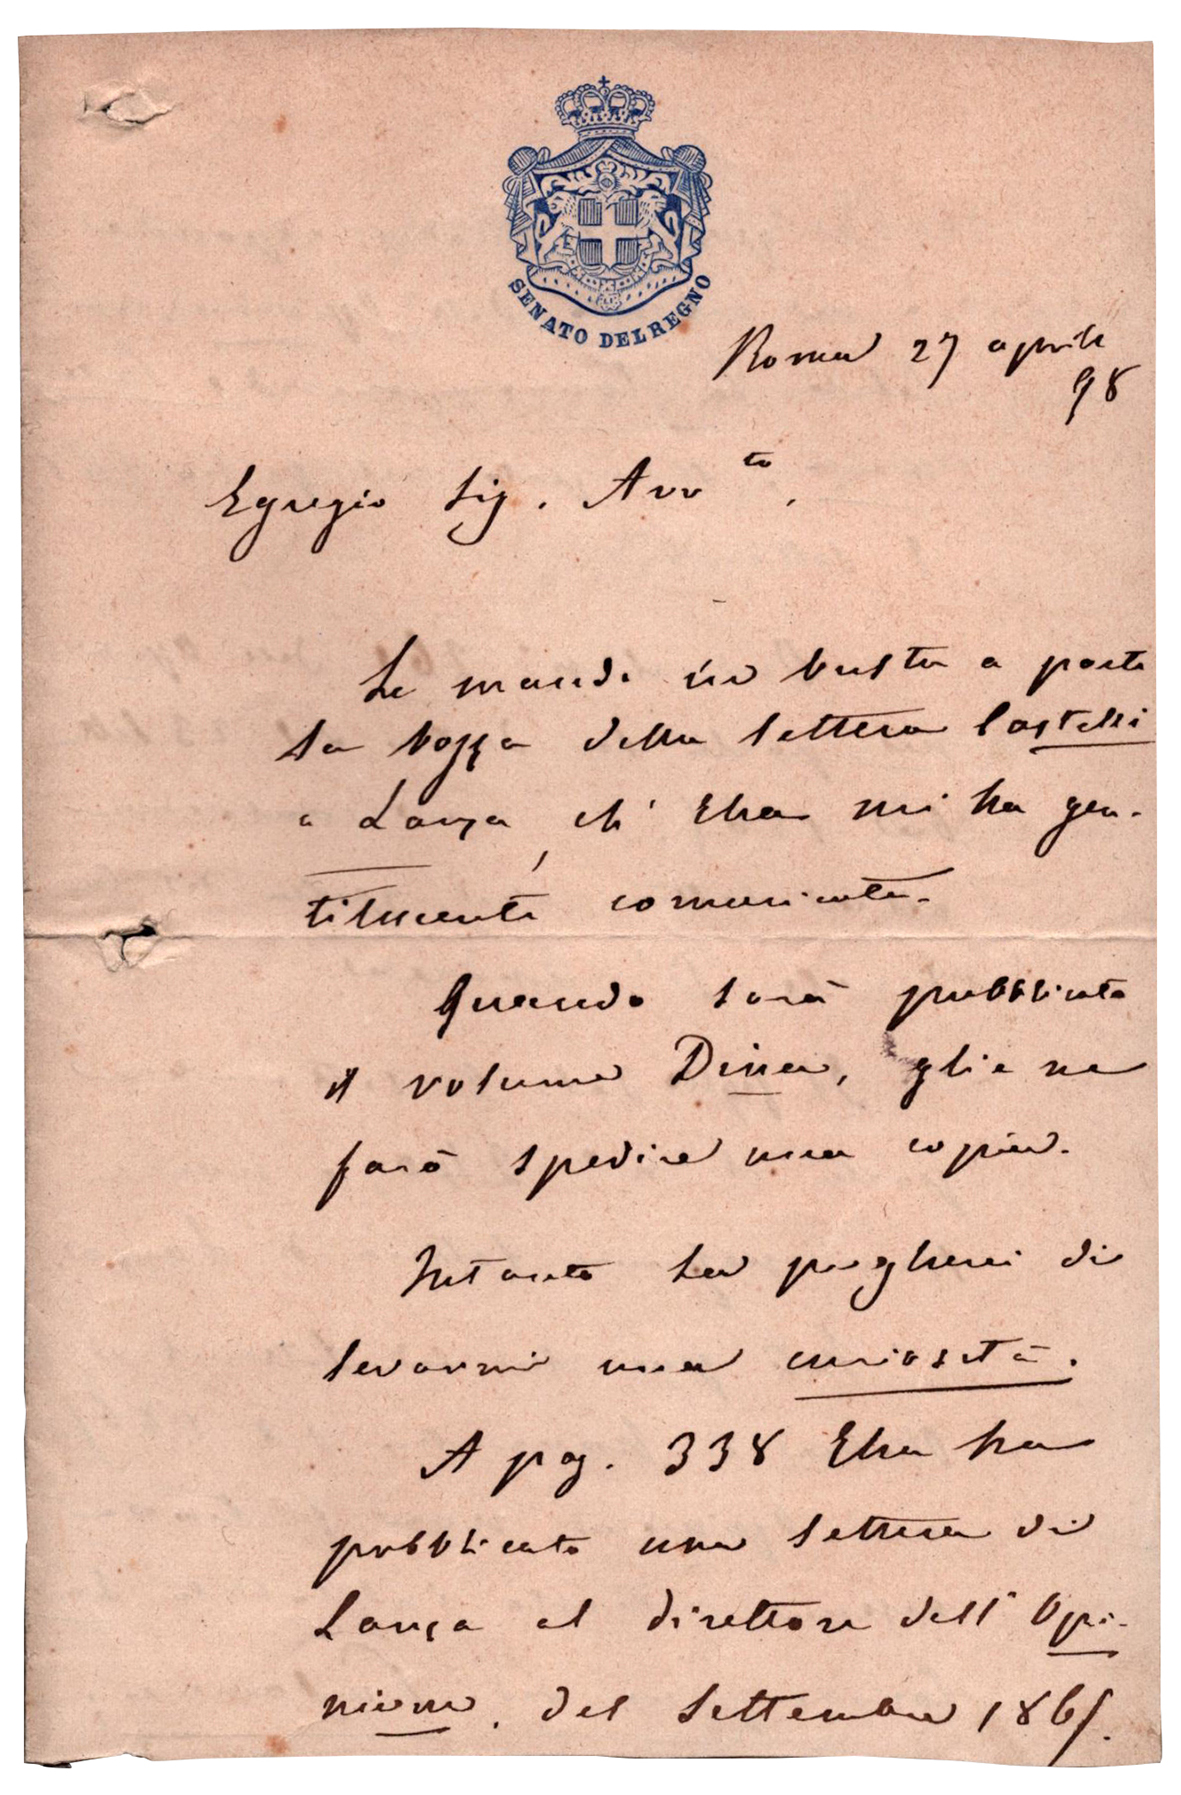 SENATO DEL REGNO
Roma 27 aprile
98
Egregio Sig. Avv.to,
Le mando in busta a parte
la bozza della lettera Castelli
a Lanza, ch'Ella mi ha gen-
tilmente comunicata.
Quando sarà pubblicato
il volume Dina, gliene
farò spedire una copia.
Intanto La pregherei di
levarmi una curiosità.
A pag. 338 Ella ha
pubblicato una lettera di
Lanza al direttore dell'Opi-
nione, del settembre 1865.